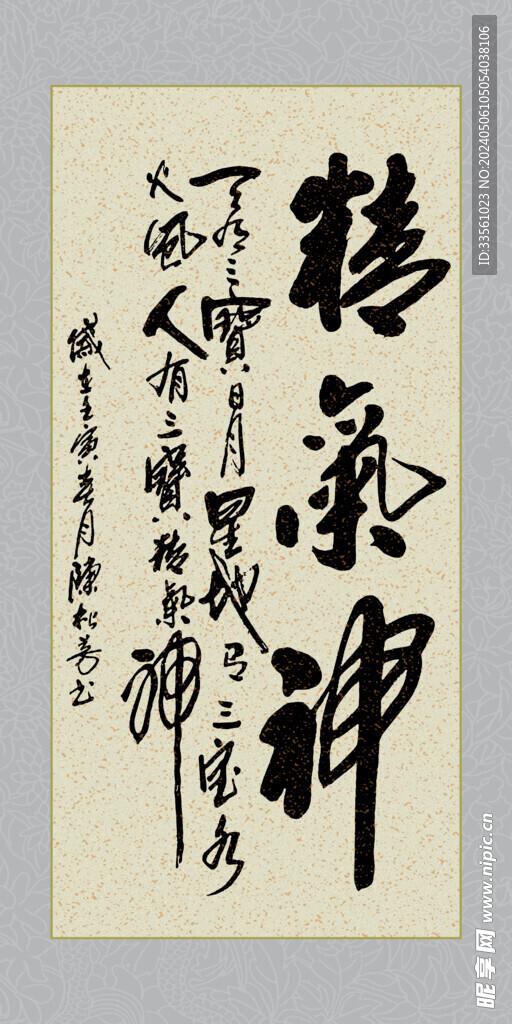 精氣神
天有三寶日月星地有三宝水
火風人有三寶精氣神
歲在壬寅春月陳松芳书
ID:33561023 NO:20240506105054038106
昵享网 www.nipic.cn